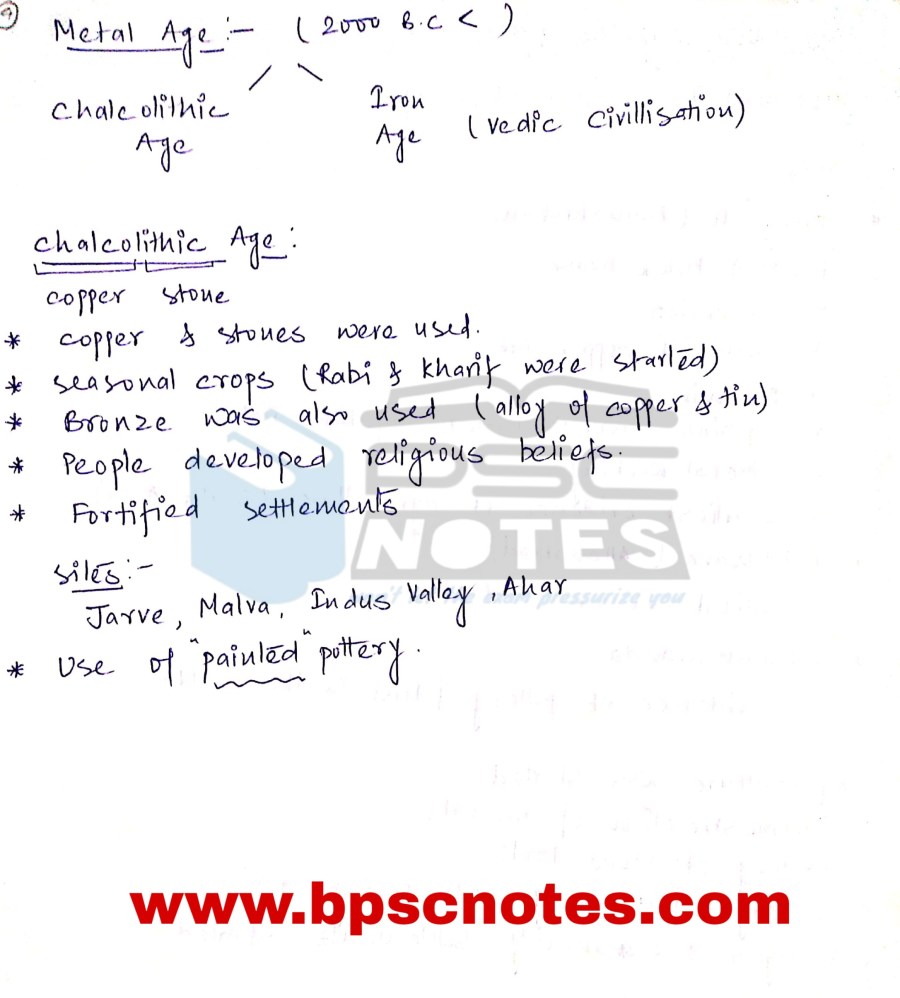 9
Metal Age :- ( 2000 B.C < )
Chalcolithic Age
Iron Age (Vedic Civillisation)
Chalcolithic Age :
copper stone
* copper & stones were used.
* seasonal crops (Rabi & Kharif were started)
* Bronze was also used (alloy of copper & tin)
* People developed religious beliefs.
* Fortified settlements
Sites :-
Jarve, Malva, Indus Valley, Ahar
* Use of "painted" pottery.
PSC
NOTES
pressurize you
www.bpscnotes.com